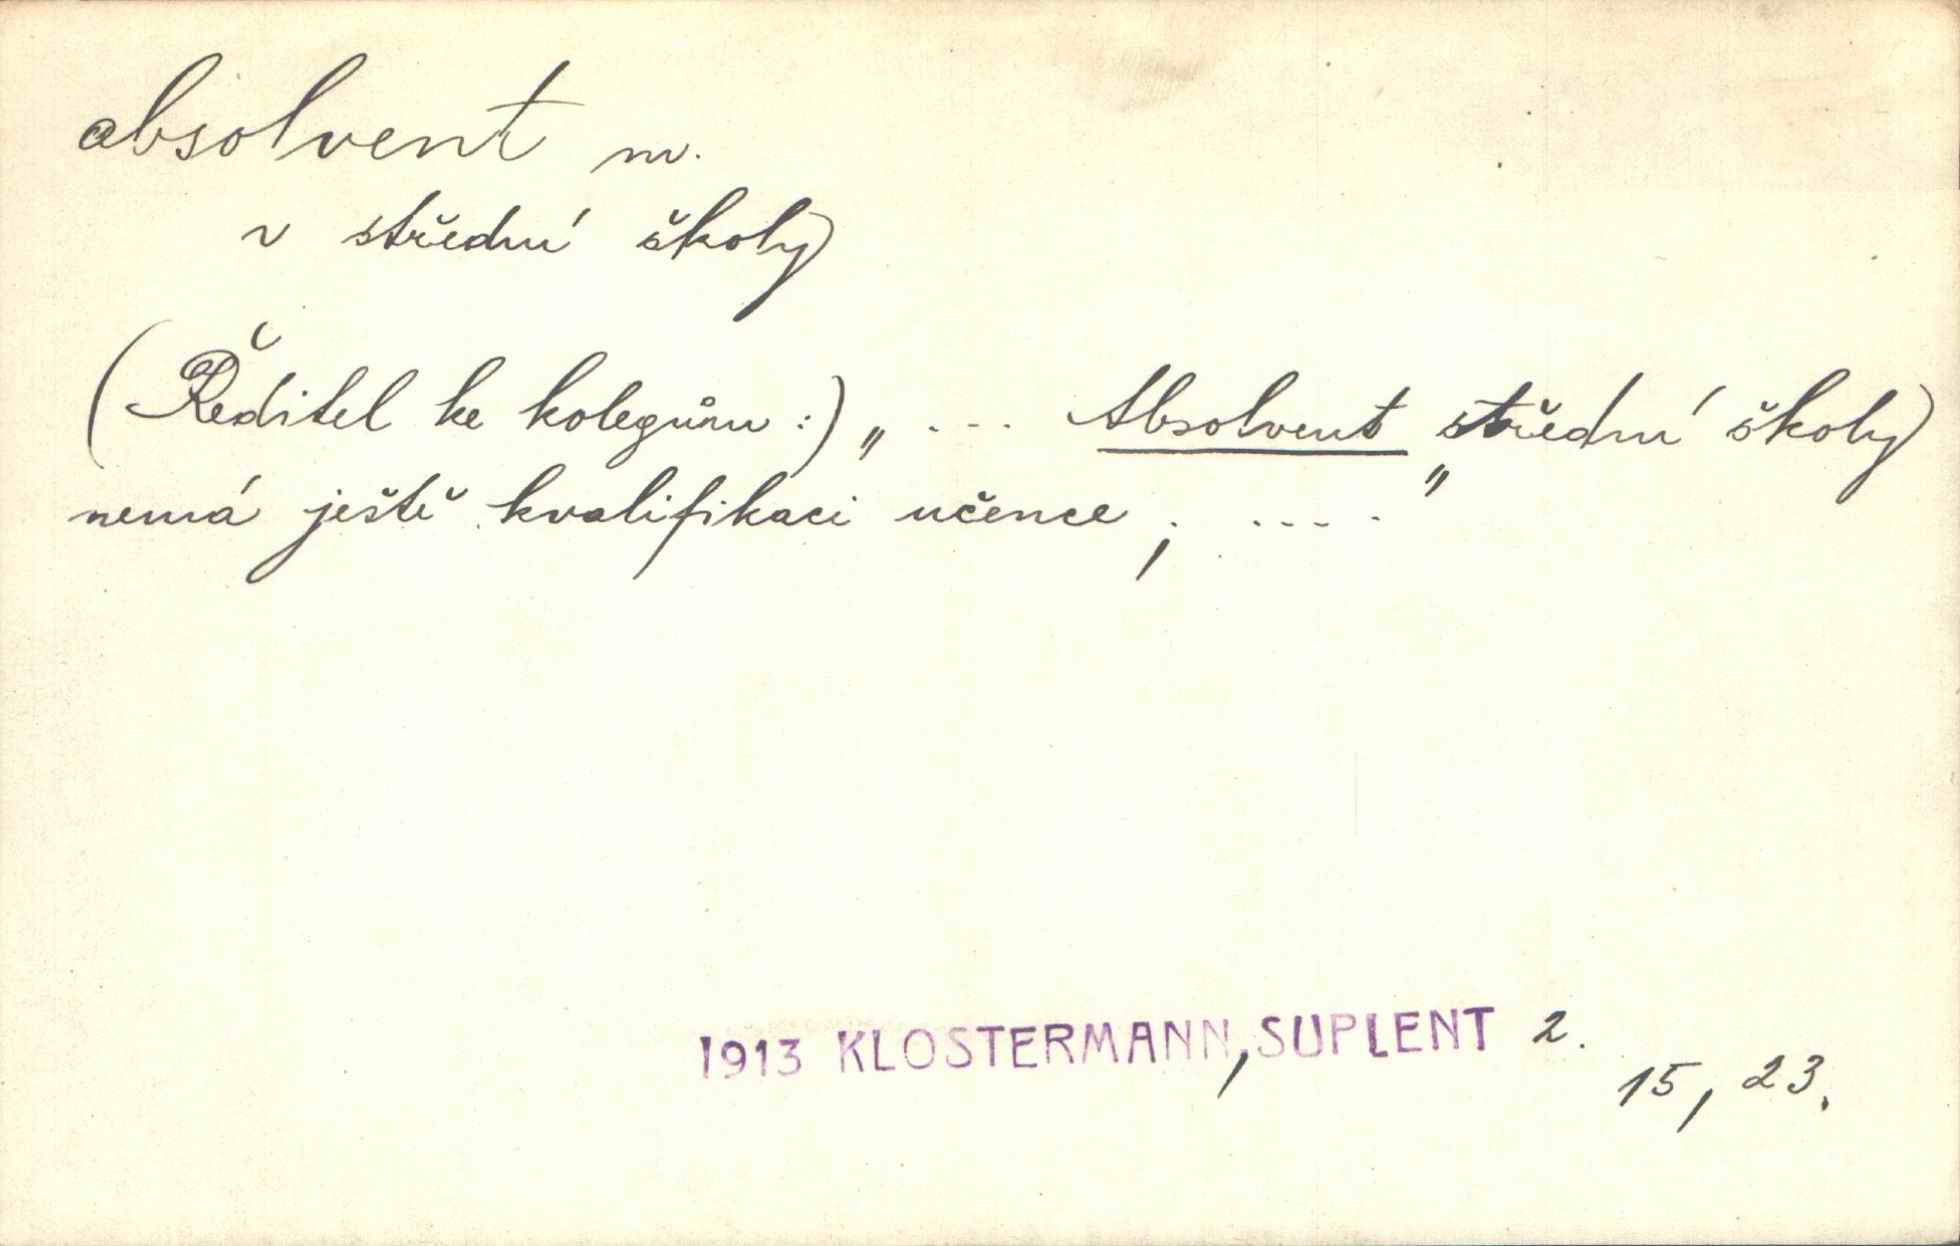 absolvent m.
v střední školy
(Ředitel ke kolegům:) „ .... Absolvent střední školy
nemá ještě kvalifikaci učence; ....“
1913 KLOSTERMANN, SUPLENT 2.
15, 23.